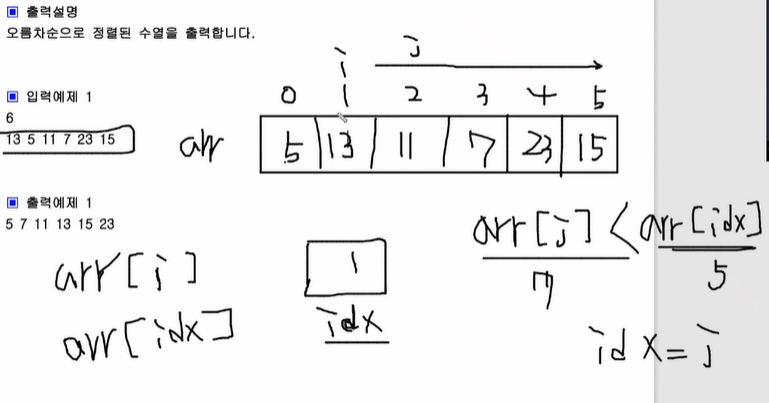 ▣ 출력설명
오름차순으로 정렬된 수열을 출력합니다.
▣ 입력예제 1
6
13 5 11 7 23 15
▣ 출력예제 1
5 7 11 13 15 23
i j
0 1 2 3 4 5
arr 5 13 11 7 23 15
arr[j] < arr[idx]
7 5
arr[i]
1
arr[idx]
idx
idx=j